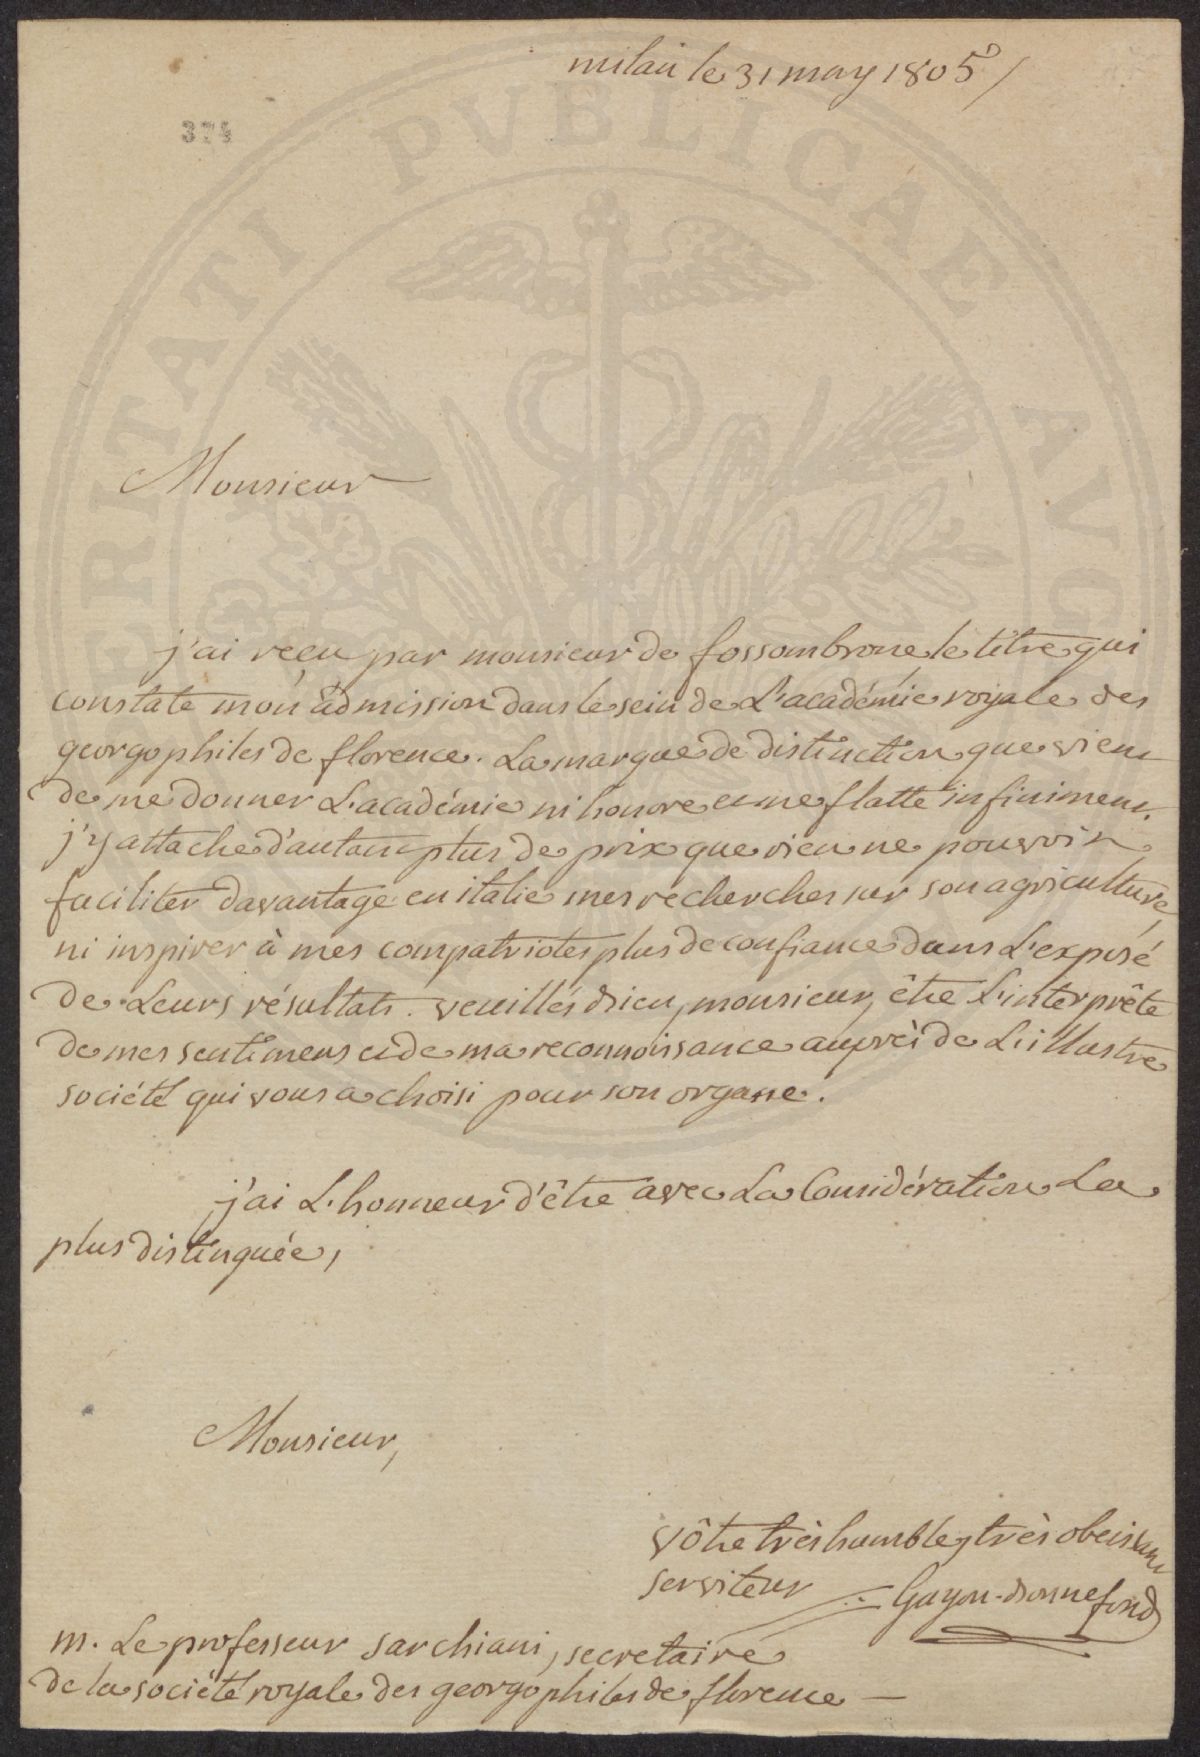 milan le 31 may 1805
374
PVBLICAE
Monsieur
j'ai reçu par monsieur de fossombrone le titre qui
constate mon admission dans le sein de L'académie royale des
georgophiles de florence. La marque de distinction que vient
de me donner L'académie m'honore et me flatte infiniment.
j'y attache d'autant plus de prix que rien ne pouvoit
faciliter davantage en italie mes recherches sur son agriculture,
ni inspirer à mes compatriotes plus de confiance dans L'exposé
de Leurs résultats. veuillés bien, monsieur, être L'interprête
de mes sentimens et de ma reconnoissance auprès de L'illustre
société qui vous a choisi pour son organe.
j'ai L'honneur d'être avec La Considération La
plus distinguée,
Monsieur,
vôtre très humble, très obeissant
serviteur
m. Le professeur sarchiani, secretaire
de la société royale des georgophiles de florence —